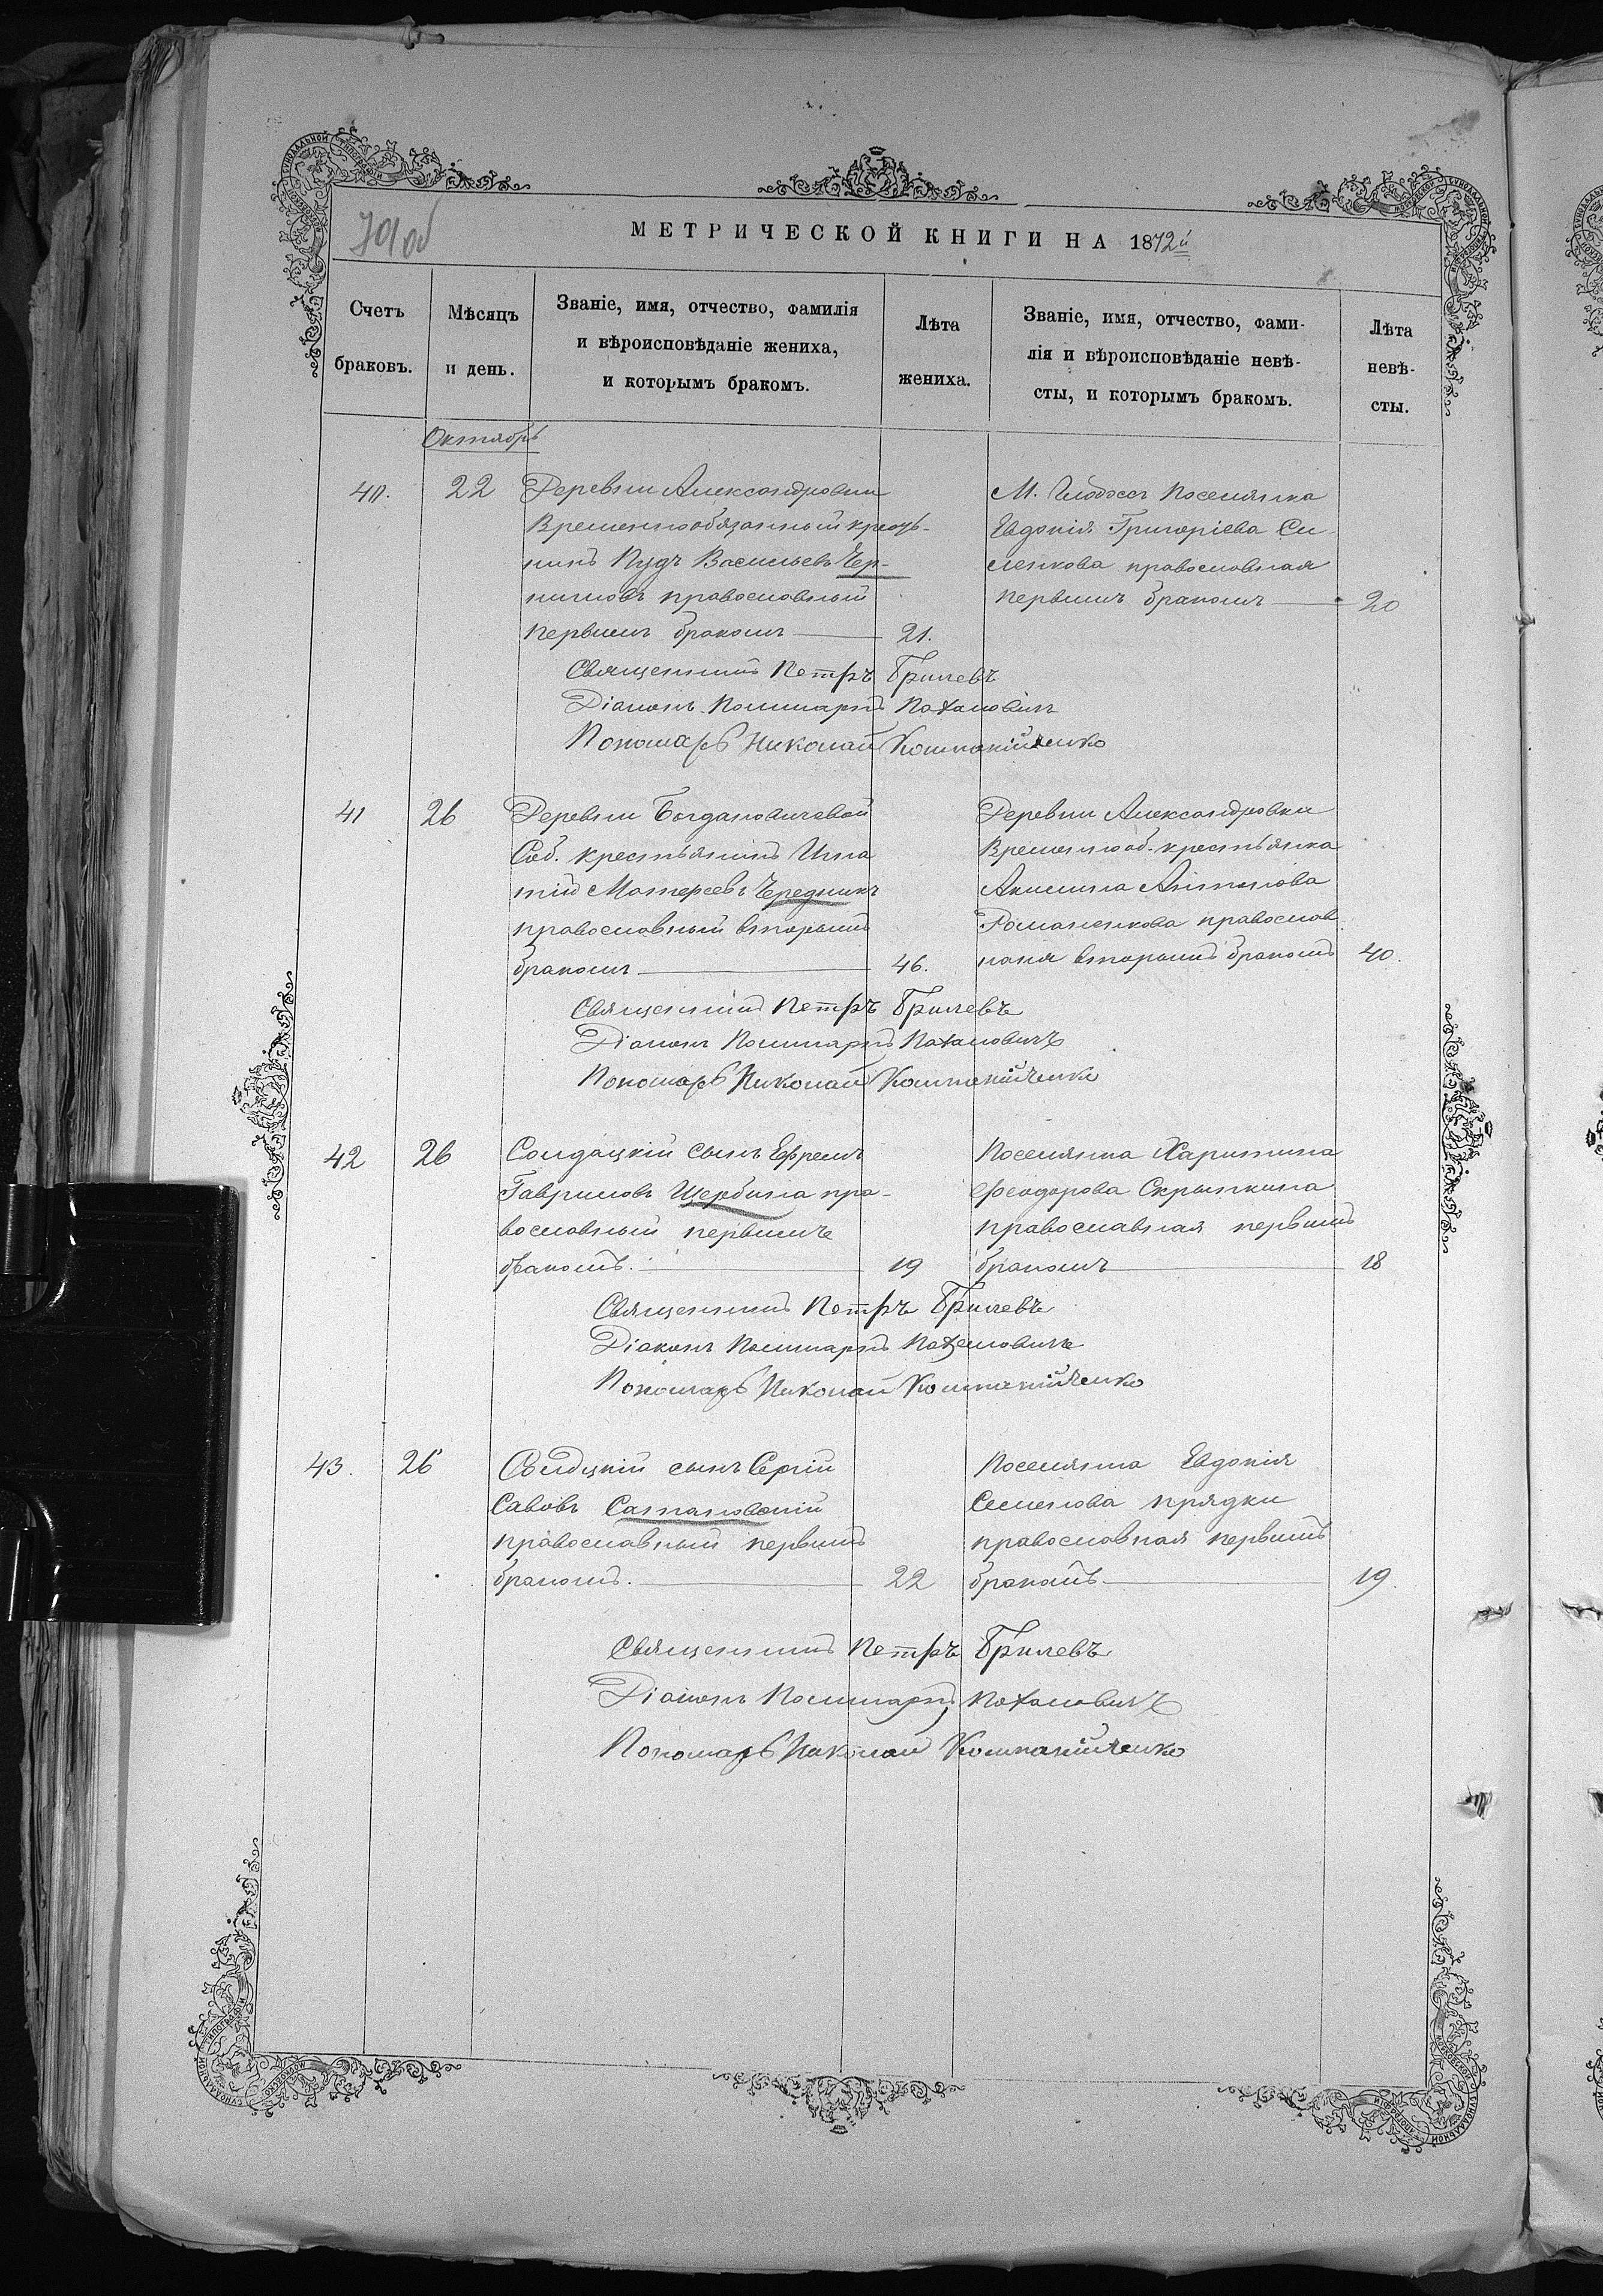 701об
МЕТРИЧЕСКОЙ КНИГИ НА 1872й
Счетъ браковъ.
Мѣсяцъ и день.
Званіе, имя, отчество, фамилія
и вѣроисповѣданіе жениха,
и которымъ бракомъ.
Лѣта жениха.
Званіе, имя, отчество, фами-
лія и вѣроисповѣданіе невѣ-
сты, и которымъ бракомъ.
Лѣта невѣ-
сты.
Октябрь
40.
22
Деревни Александровки
Временнообязанный кресть-
нинъ Пудъ Васильевъ Чер-
ниловъ православный
первымъ бракомъ
21.
М. Глодоссъ Поселянка
Евдокія Григоріева Си
ленкова православная
первымъ бракомъ
20
Священникъ Петръ Грилевъ
Діаконъ Поликарпъ
Пономарь Николай Компанійченко
41
26
Деревни Богдановичевой
Соб. крестьянинъ Игна
тій Матѳеевъ Чередникъ
православный вторымъ
бракомъ
46.
Деревни Александровки
Временнооб. крестьянка
Акилина Антонова
Романенкова православ
ная вторымъ бракомъ
40.
Священникъ Петръ Грилевъ
Діаконъ Поликарпъ
Пономарь Николай Компанійченко
42
26
Солдацкій сынъ Ефремъ
Гавриловъ Щербина пра-
вославный первымъ
бракомъ.
19
Поселянка Харитина
Феодорова Скрынкина
православная первымъ
бракомъ
18
Священникъ Петръ Грилевъ
Діаконъ Поликарпъ
Пономарь Николай Компанійченко
43.
26
Солдцкій сынъ Сергій
Савовъ Сатановскій
православный первымъ
бракомъ.
22
Поселянка Евдокія
Семенова Прядки
православная первымъ
бракомъ
19.
Священникъ Петръ Грилевъ
Діаконъ Поликарпъ
Пономарь Николай Компанійченко